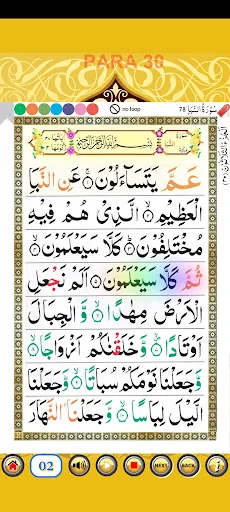 PARA 30
no loop
78 سُوْرَةُ النَّبَا
بِسْمِ اللّٰهِ الرَّحْمٰنِ الرَّحِيْمِ
عَمَّ يَتَسَآءَلُوْنَ ۝١ عَنِ النَّبَاِ
الْعَظِيْمِ ۝٢ الَّذِيْ هُمْ فِيْهِ
مُخْتَلِفُوْنَ ۝٣ كَلَّا سَيَعْلَمُوْنَ ۝٤
ثُمَّ كَلَّا سَيَعْلَمُوْنَ ۝٥ اَلَمْ نَجْعَلِ
الْاَرْضَ مِهٰدًا ۝٦ وَّالْجِبَالَ
اَوْتَادًا ۝٧ وَّخَلَقْنٰكُمْ اَزْوَاجًا ۝٨
وَّجَعَلْنَا نَوْمَكُمْ سُبَاتًا ۝٩ وَّجَعَلْنَا
الَّيْلَ لِبَاسًا ۝١٠ وَّجَعَلْنَا النَّهَارَ
02
NEXT
BACK